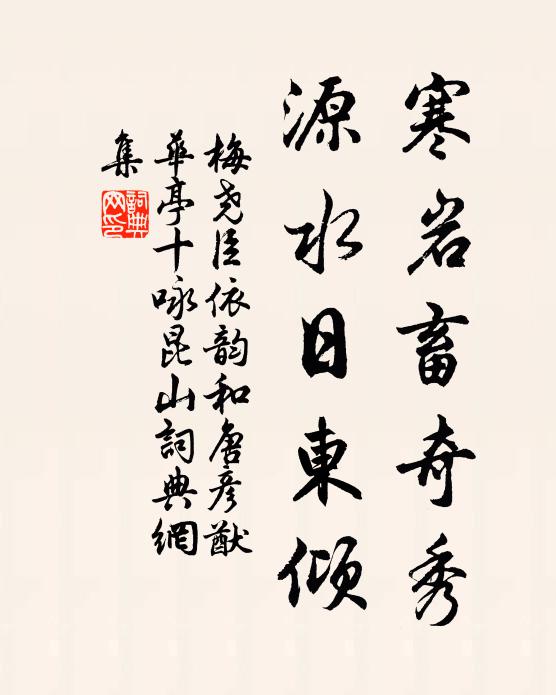 寒岩畜奇秀
源水日東傾
梅堯臣依韵和唐彦猷
華亭十咏昆山詞典網
集
詞典网印